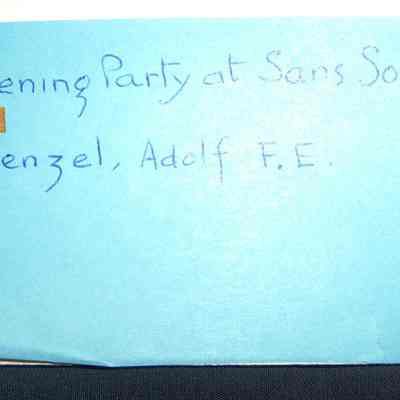 ening Party at Sans So
enzel, Adolf F.E.